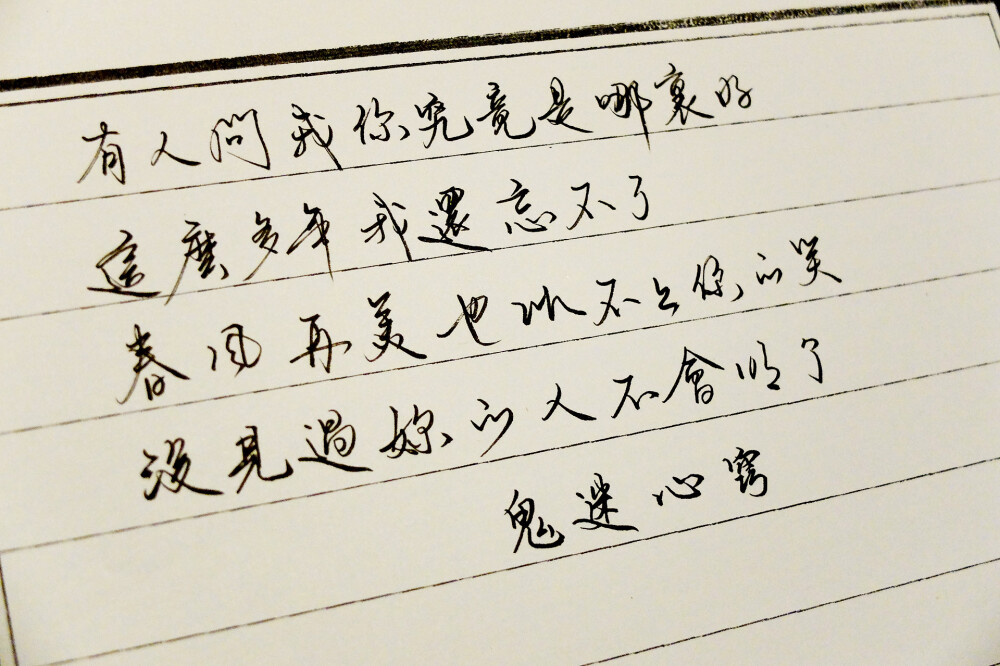 有人問我你究竟是哪裏好
這麼多年我還忘不了
春風再美也比不上你的笑
沒見過妳的人不會明了
鬼迷心竅